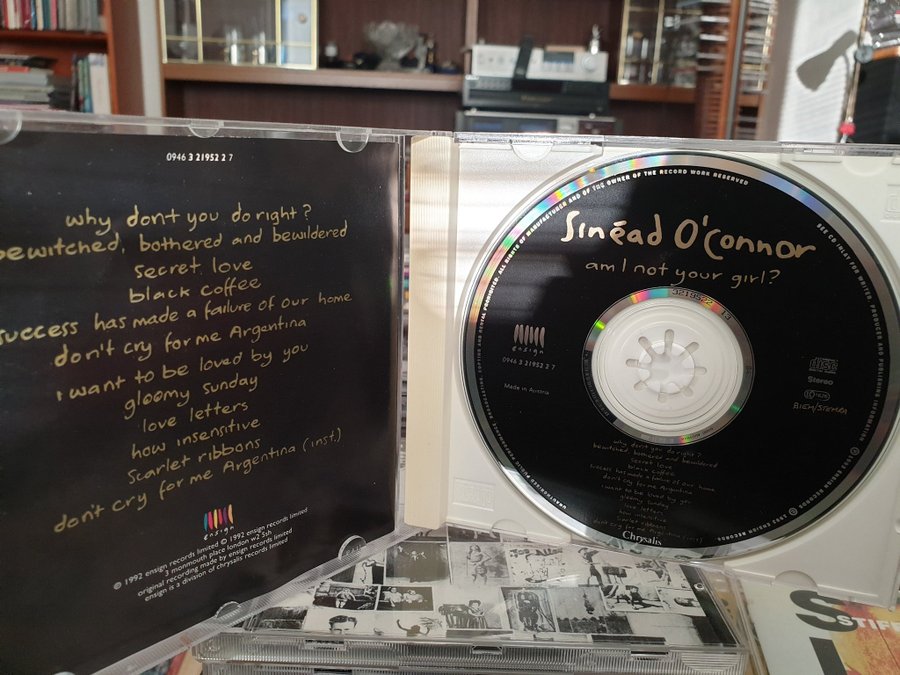 0946 3 21952 2 7
why don't you do right?
bewitched, bothered and bewildered
secret love
black coffee
success has made a failure of our home
don't cry for me Argentina
i want to be loved by you
gloomy sunday
love letters
how insensitive
scarlet ribbons
don't cry for me Argentina (inst.)
ensign
℗ 1992 ensign records limited © 1992 ensign records limited
3 monmouth place london w2 5sh
original recording made by ensign records limited
ensign is a division of chrysalis records limited
ALL RIGHTS OF THE MANUFACTURER AND OF THE OWNER OF THE RECORD WORK RESERVED
SEE CD INLAY FOR WRITER, PRODUCER AND PUBLISHING INFORMATION
Sinéad O'Connor
am I not your girl?
ensign
0946 3 21952 2 7
Made in Austria
Stereo
BIEM/STEMRA
why don't you do right?
bewitched, bothered and bewildered
secret love
black coffee
success has made a failure of our home
don't cry for me Argentina
i want to be loved by you
gloomy
love letters
Chrysalis
STIFF